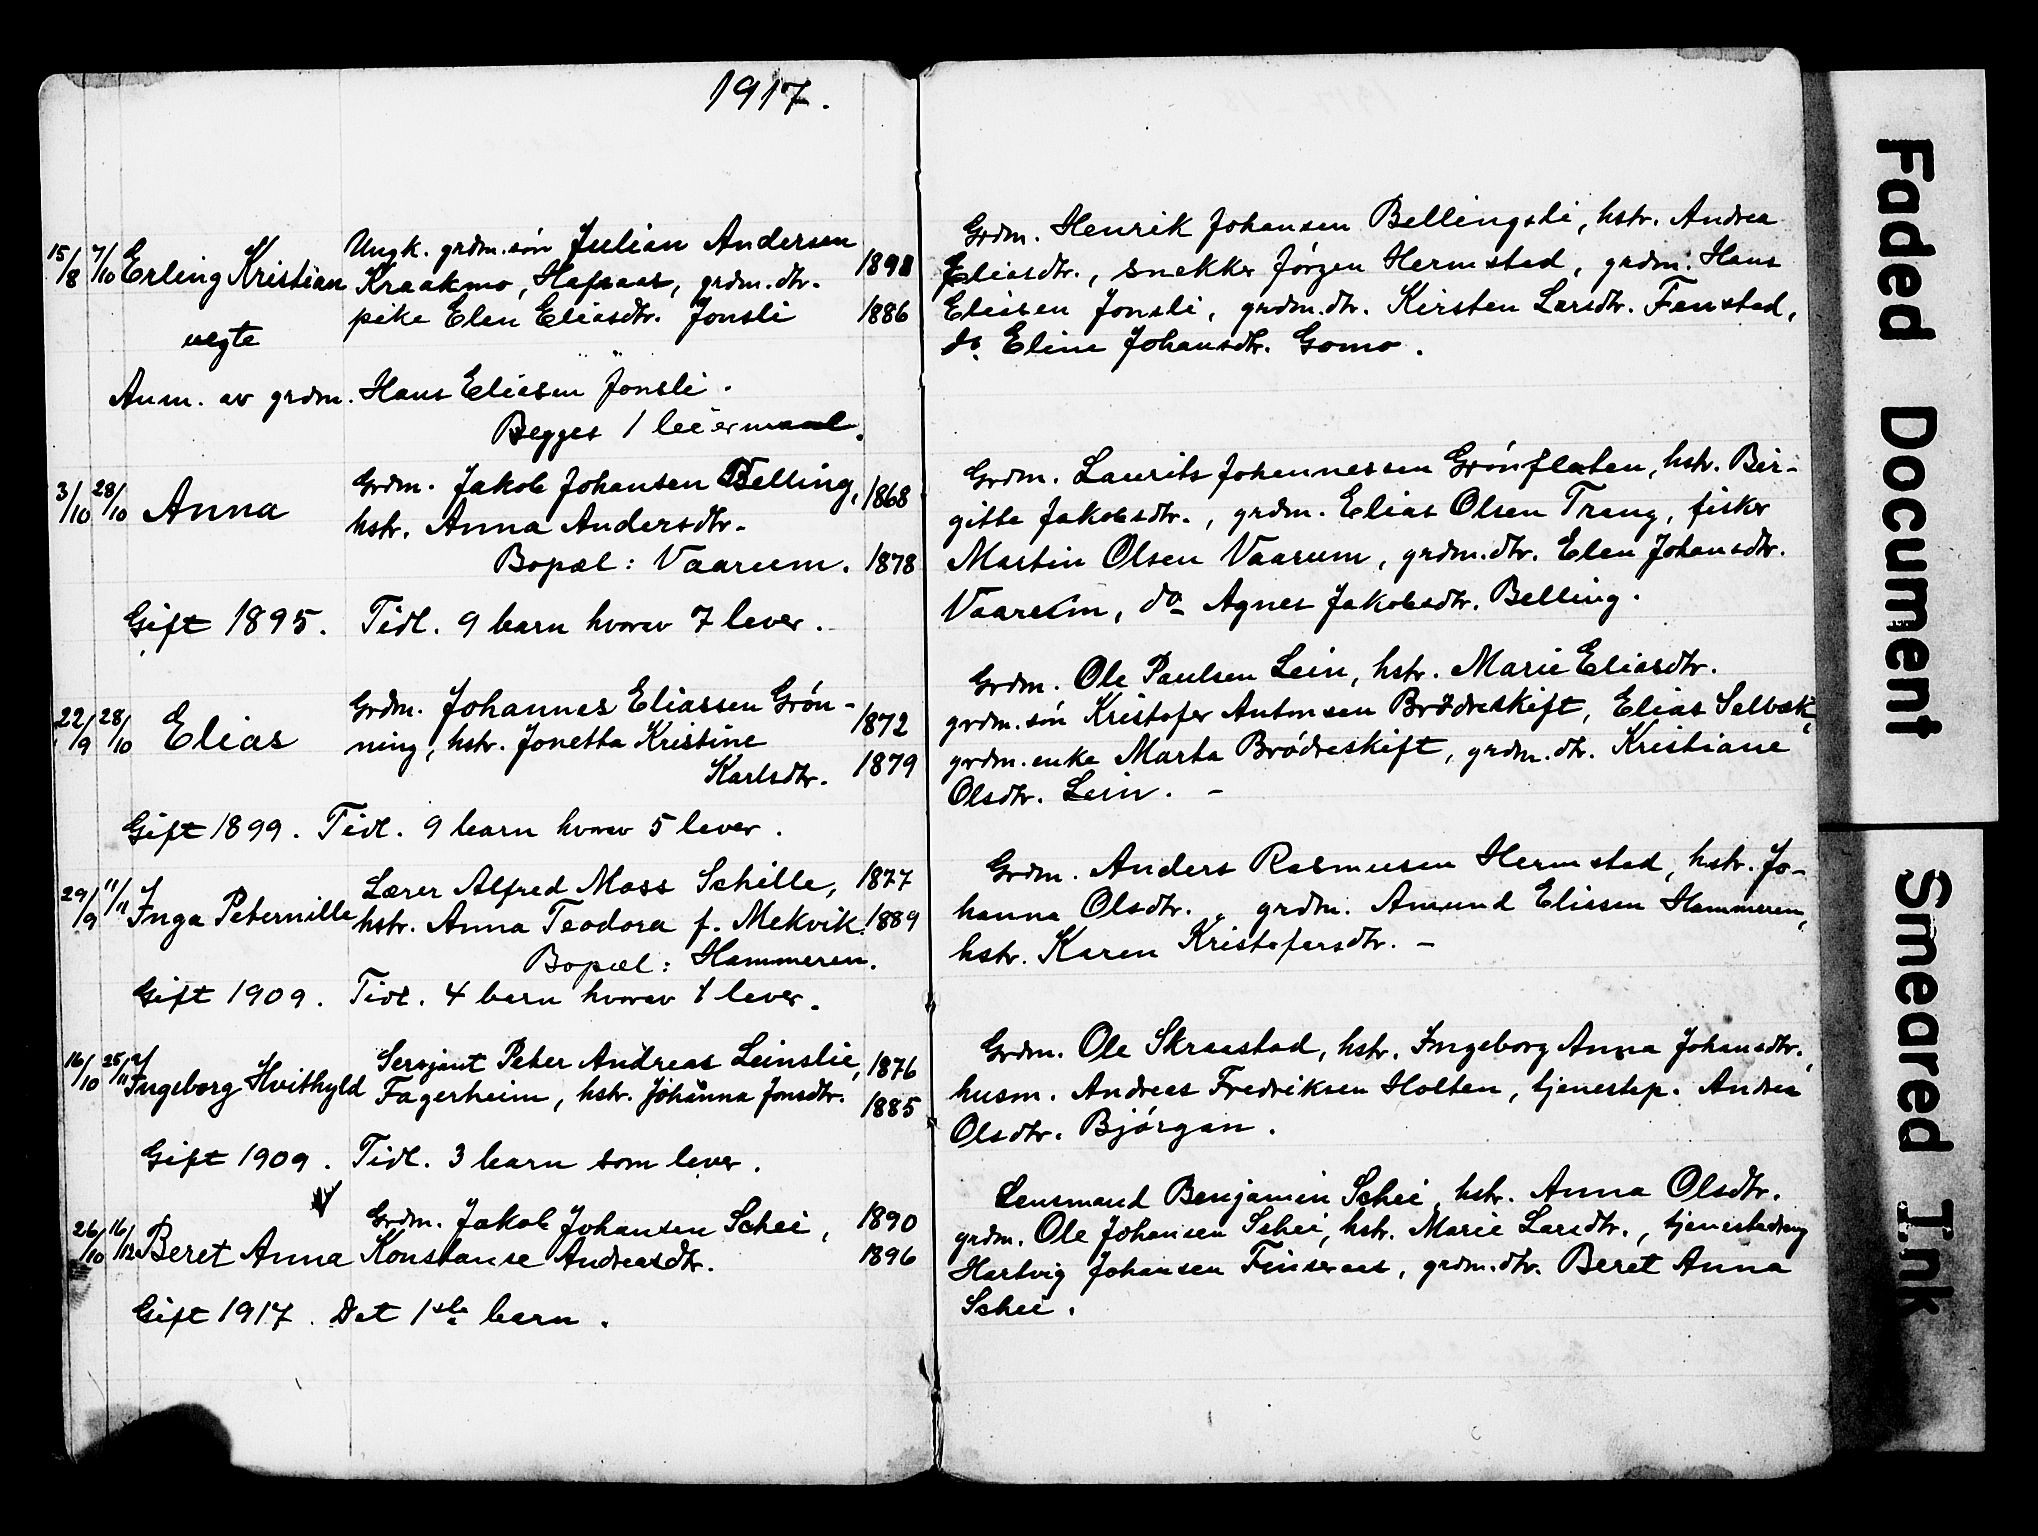 1917.
15/8 7/10 Erling Kristian Ungk. grdm.søn Julian Andersen
Kraakmo, Hafsaas, grdm.dtr. 1891
uegte pike Elen Eliasdtr. Jonsli 1886
Anm. av grdm. Hans Eliesen Jonsli.
Begges 1 leiermaal.
3/10 28/10 Anna Grdm. Jakob Johansen Belling, 1868
hstr. Anna Andersdtr.
Bopæl: Vaarum. 1878
Gift 1895. Tidl. 9 barn hvorav 7 lever.
22/9 28/10 Elias Grdm. Johannes Eliassen Grøn- 1872
ning, hstr. Jonetta Kristine
Karlsdtr. 1879
Gift 1899. Tidl. 9 barn hvorav 5 lever.
29/9 11/11 Inga Peternille Lærer Alfred Moss Schille, 1877
hstr. Anna Teodora f. Mekvik. 1889
Bopæl: Hammeren.
Gift 1909. Tidl. 4 barn hvorav 1 lever.
16/10 25/11 Ingeborg Hvithyld Sersjant Peter Andreas Leinslie, 1876
Fagerheim, hstr. Johanna Jonsdtr. 1885
Gift 1909. Tidl. 3 barn som lever.
26/10 16/12 Beret Anna Grdm. Jakob Johansen Schei, 1890
Konstanse Andreasdtr. 1896
Gift 1917. Det 1ste barn.
Grdm. Henrik Johansen Bellingsli, hstr. Andrea
Eliasdtr., snekker Jørgen Hermstad, grdm. Hans
Eliesen Jonsli, grdm.dtr. Kirsten Larsdtr. Fenstad,
do. Eline Johansdtr. Gomo.
Grdm. Laurits Johannessen Grønfleten, hstr. Bir-
gitte Jakobsdtr., grdm. Elias Olsen Trang, fisker
Martin Olsen Vaarum, grdm.dtr. Elen Johansdtr.
Vaarum, do Agnes Jakobsdtr. Belling.
Grdm. Ole Paulsen Lein, hstr. Marie Eliasdtr.
grdm.søn Kristofer Antonsen Brødreskift, Elias Selbæk,
grdm.enke Marta Brødreskift, grdm.dtr. Kristiane
Olsdtr. Lein. -
Grdm. Anders Rasmusen Hermstad, hstr. Jo-
hanna Olsdtr., grdm. Amund Elissen Hammeren,
hstr. Karen Kristofersdtr. -
Grdm. Ole Skraastad, hstr. Ingeborg Anna Johansdtr.,
husm. Andreas Fredriksen Holten, tjenestep. Andrea
Olsdtr. Bjørgan.
Lensmand Benjamin Schei, hstr. Anna Olsdtr.
grdm. Ole Johansen Schei, hstr. Marie Larsdtr., tjenestedreng
Hartvig Johansen Finseraas, grdm.dtr. Beret Anna
Schei.
Faded Document
Smeared Ink